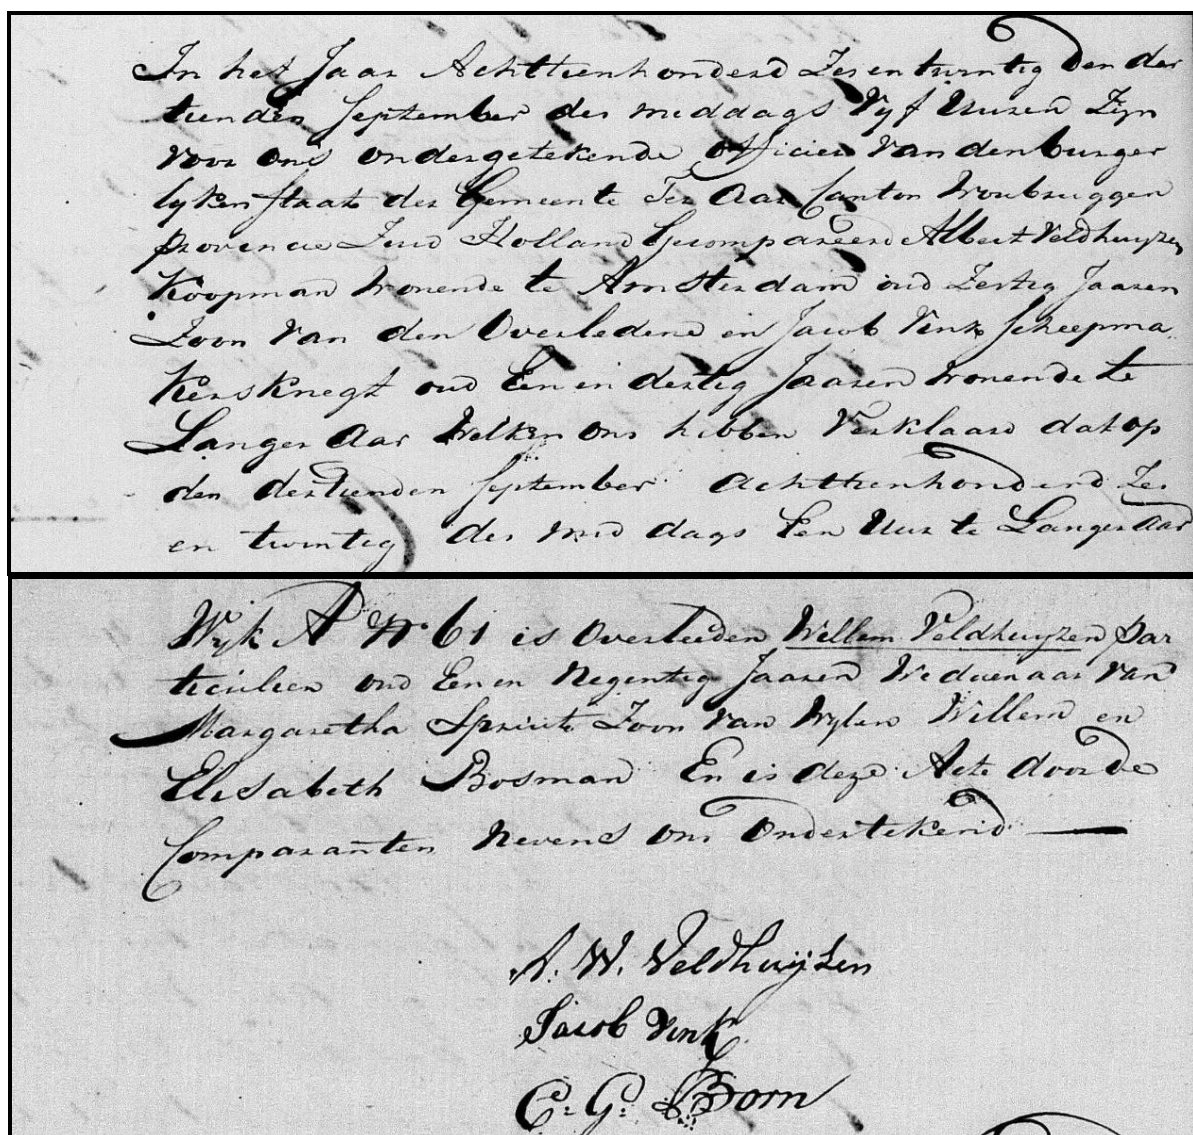 In het Jaar Achttienhonderd Zes en twintig den der
tienden September des middags Vyf Uuren Zyn
voor ons ondergetekende officier van den burger
lyken staat der Gemeente Ter Aar Canton Woubruggen
provencie Zuid Holland Gecompareerd Albert Veldhuyzen
Koopman Wonende te Amsterdam oud Zestig Jaaren
Zoon van den Overledene en Jacob Vink Scheepma
kersknegt oud Een en dertig Jaaren Wonende te
Langer Aar Welken ons hebben Verklaard dat op
den dertienden September achttienhonderd Zes
en twintig des middags Een Uur te Langer Aar
Wyk A No 61 is Overleeden Willem Veldhuyzen par
ticulier oud Een en Negentig Jaaren Weduwnaar van
Margaretha Spruit Zoon van Wylen Willem en
Elisabeth Bosman En is deze Acte door de
Comparanten Nevens ons Ondertekend
A. W. Veldhuijzen
Jacob Vink
C. G. Born